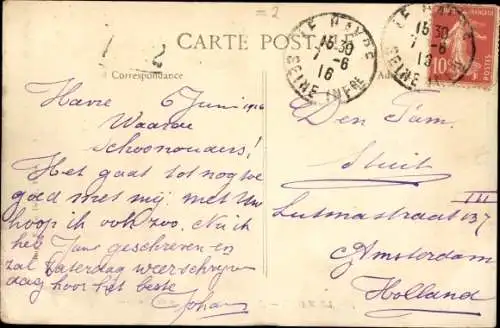 CARTE POSTALE
Correspondance
LE HAVRE
15 30
7 -6
16
SEINE INFRE
LE HAVRE
15 30
7 -6
16
SEINE
10
POSTES
Havre 6 Juni 1916
Waarde
Schoonouders!
Het gaat tot nog toe
goed met mij met Uw
hoop ik ook zoo. Nu ik
heb Jans geschreven en
zal Zaterdag weer schrijven
dag hoor het beste
Johan
Den Fam.
Stuit
Lutmastraat 137 III
Amsterdam
Holland